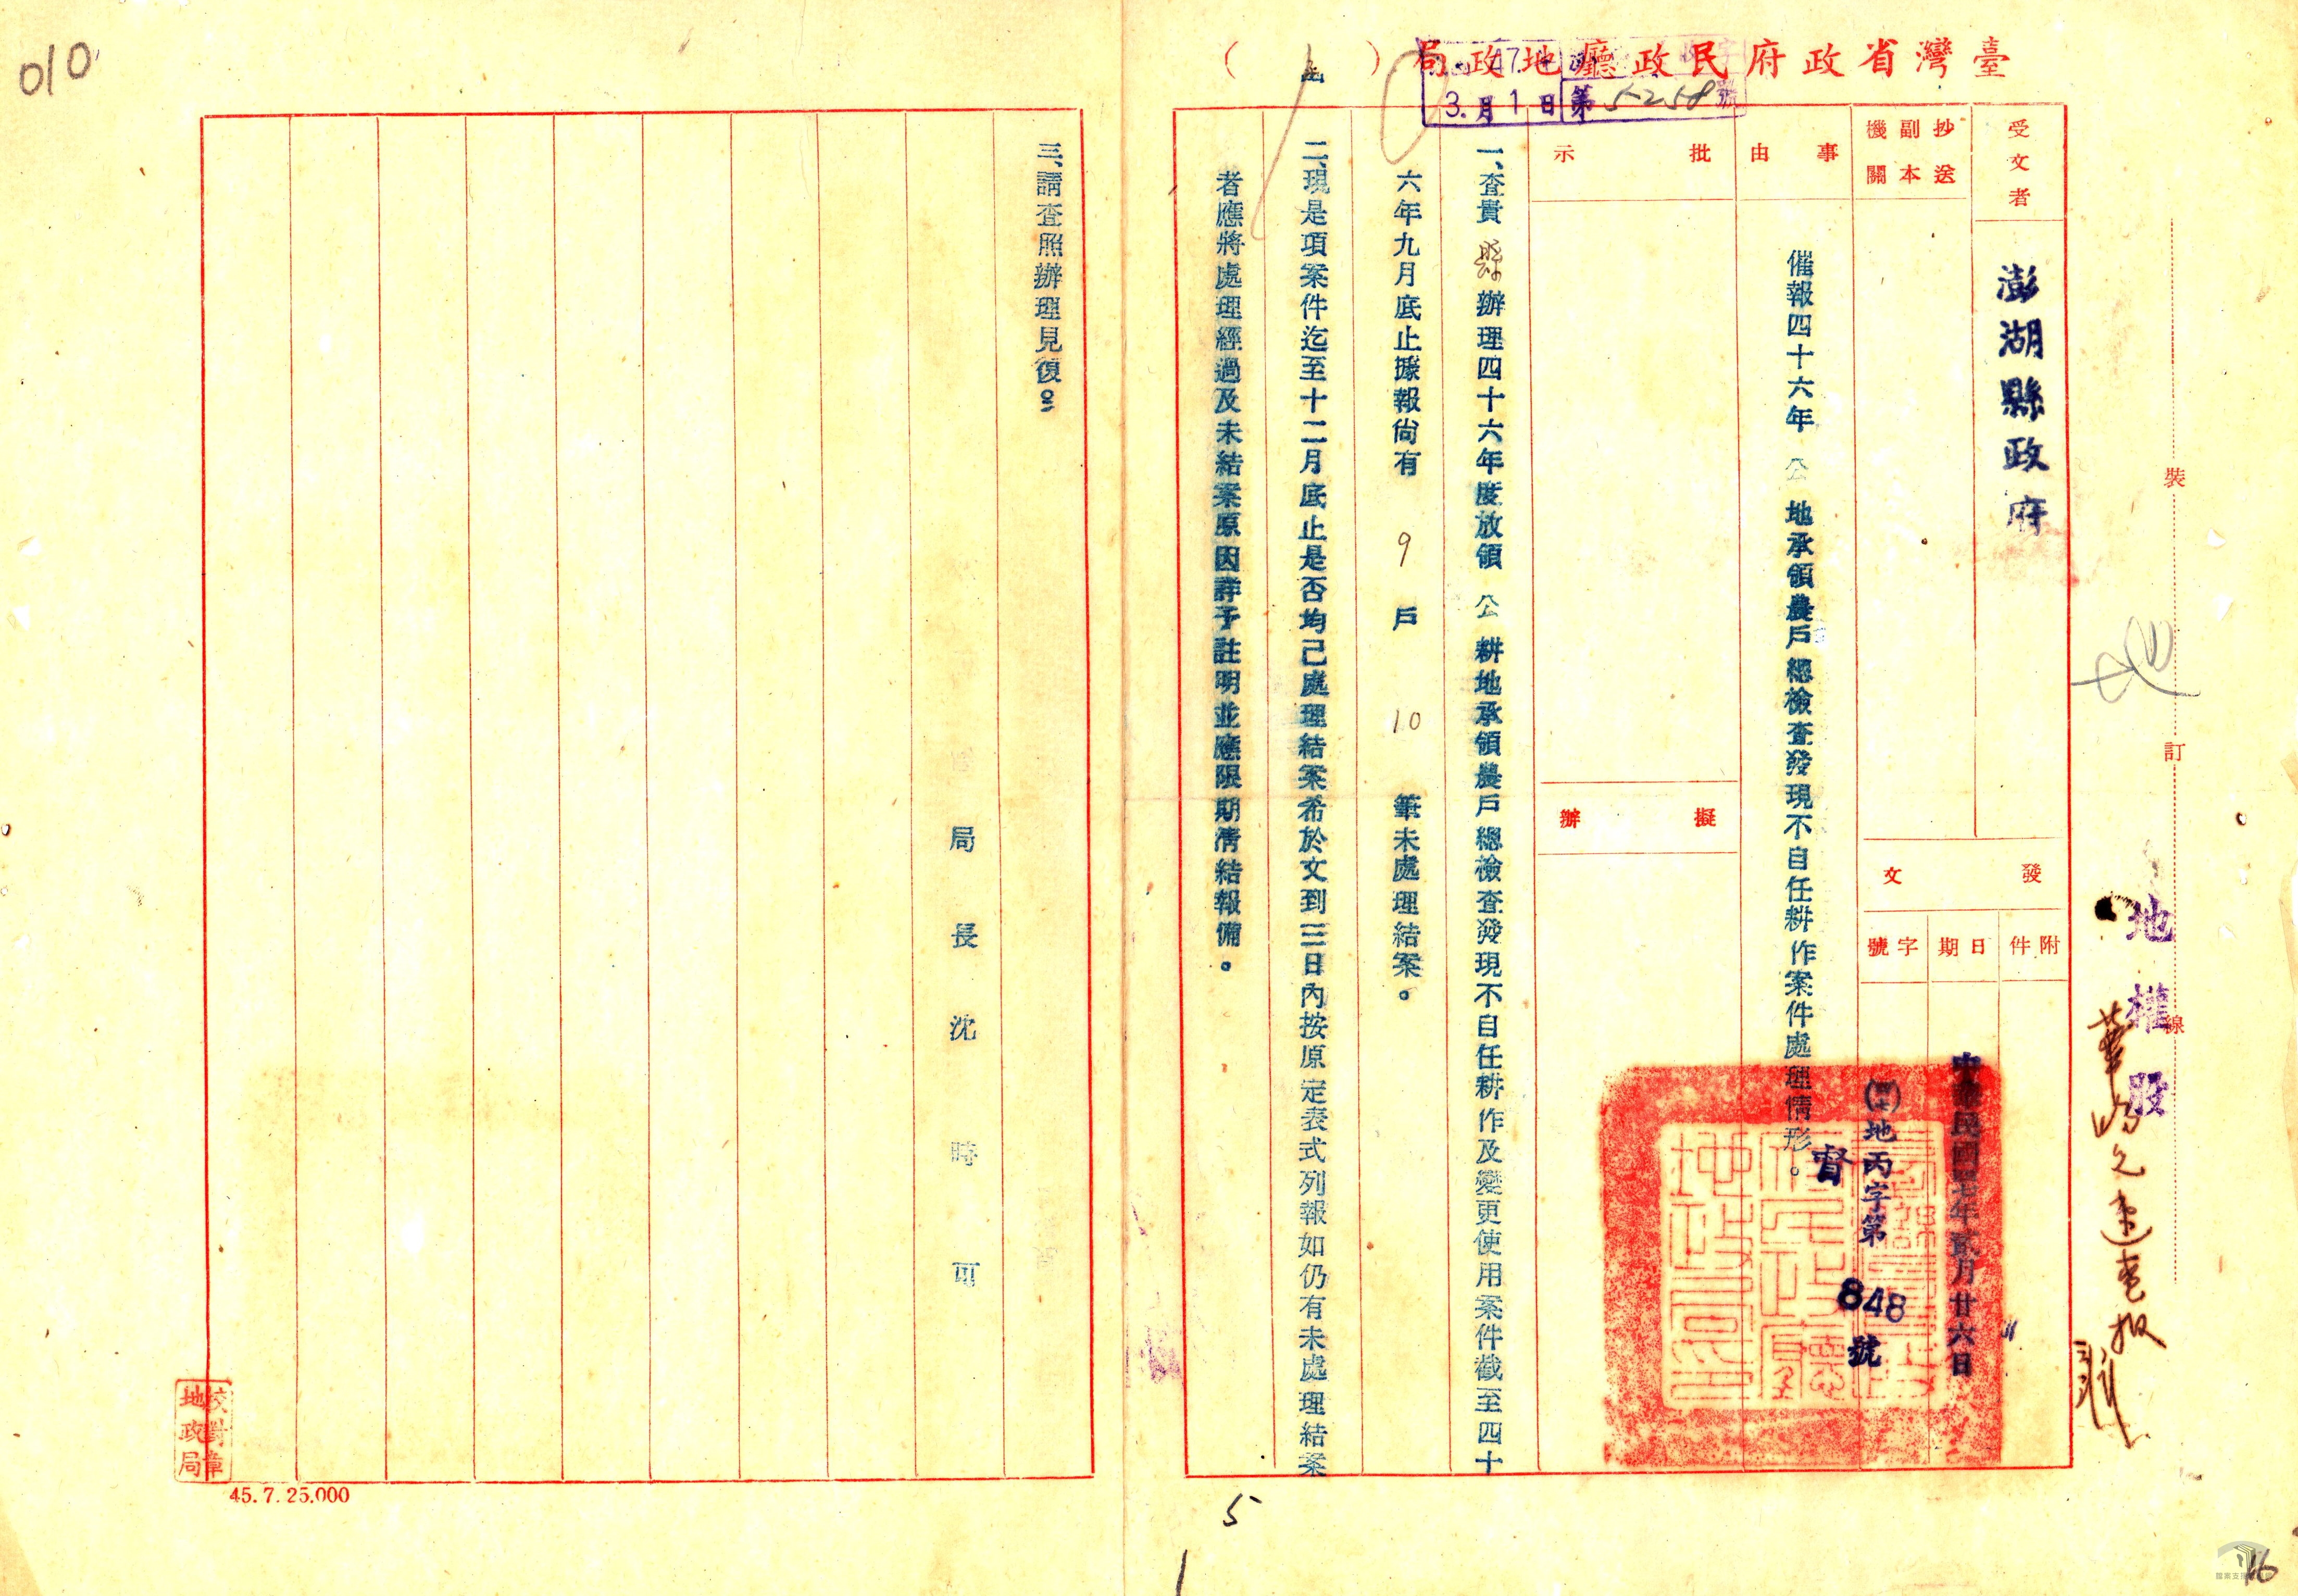 臺灣省政府民政廳地政局(函)
47
3.月1日第5258號
受文者
澎湖縣政府
抄送副本機關
事由
催報四十六年公地承領農戶總檢查發現不自任耕作案件處理情形。
批示
擬辦
發文
附件
日期
字號
中華民國四七年貳月廿六日
地丙字第848號
督
一、查貴縣辦理四十六年度放領公耕地承領農戶總檢查發現不自任耕作及變更使用案件截至四十
六年九月底止據報尚有9戶10筆未處理結案。
二、現是項案件迄至十二月底止是否均已處理結案希於文到三日內按原定表式列報如仍有未處理結案
者應將處理經過及未結案原因詳予註明並應限期清結報備。
三、請查照辦理見復。
局長沈時可
裝
訂
線
地
地權股
校對章
地政局
45.7.25.000
010
5
1
16